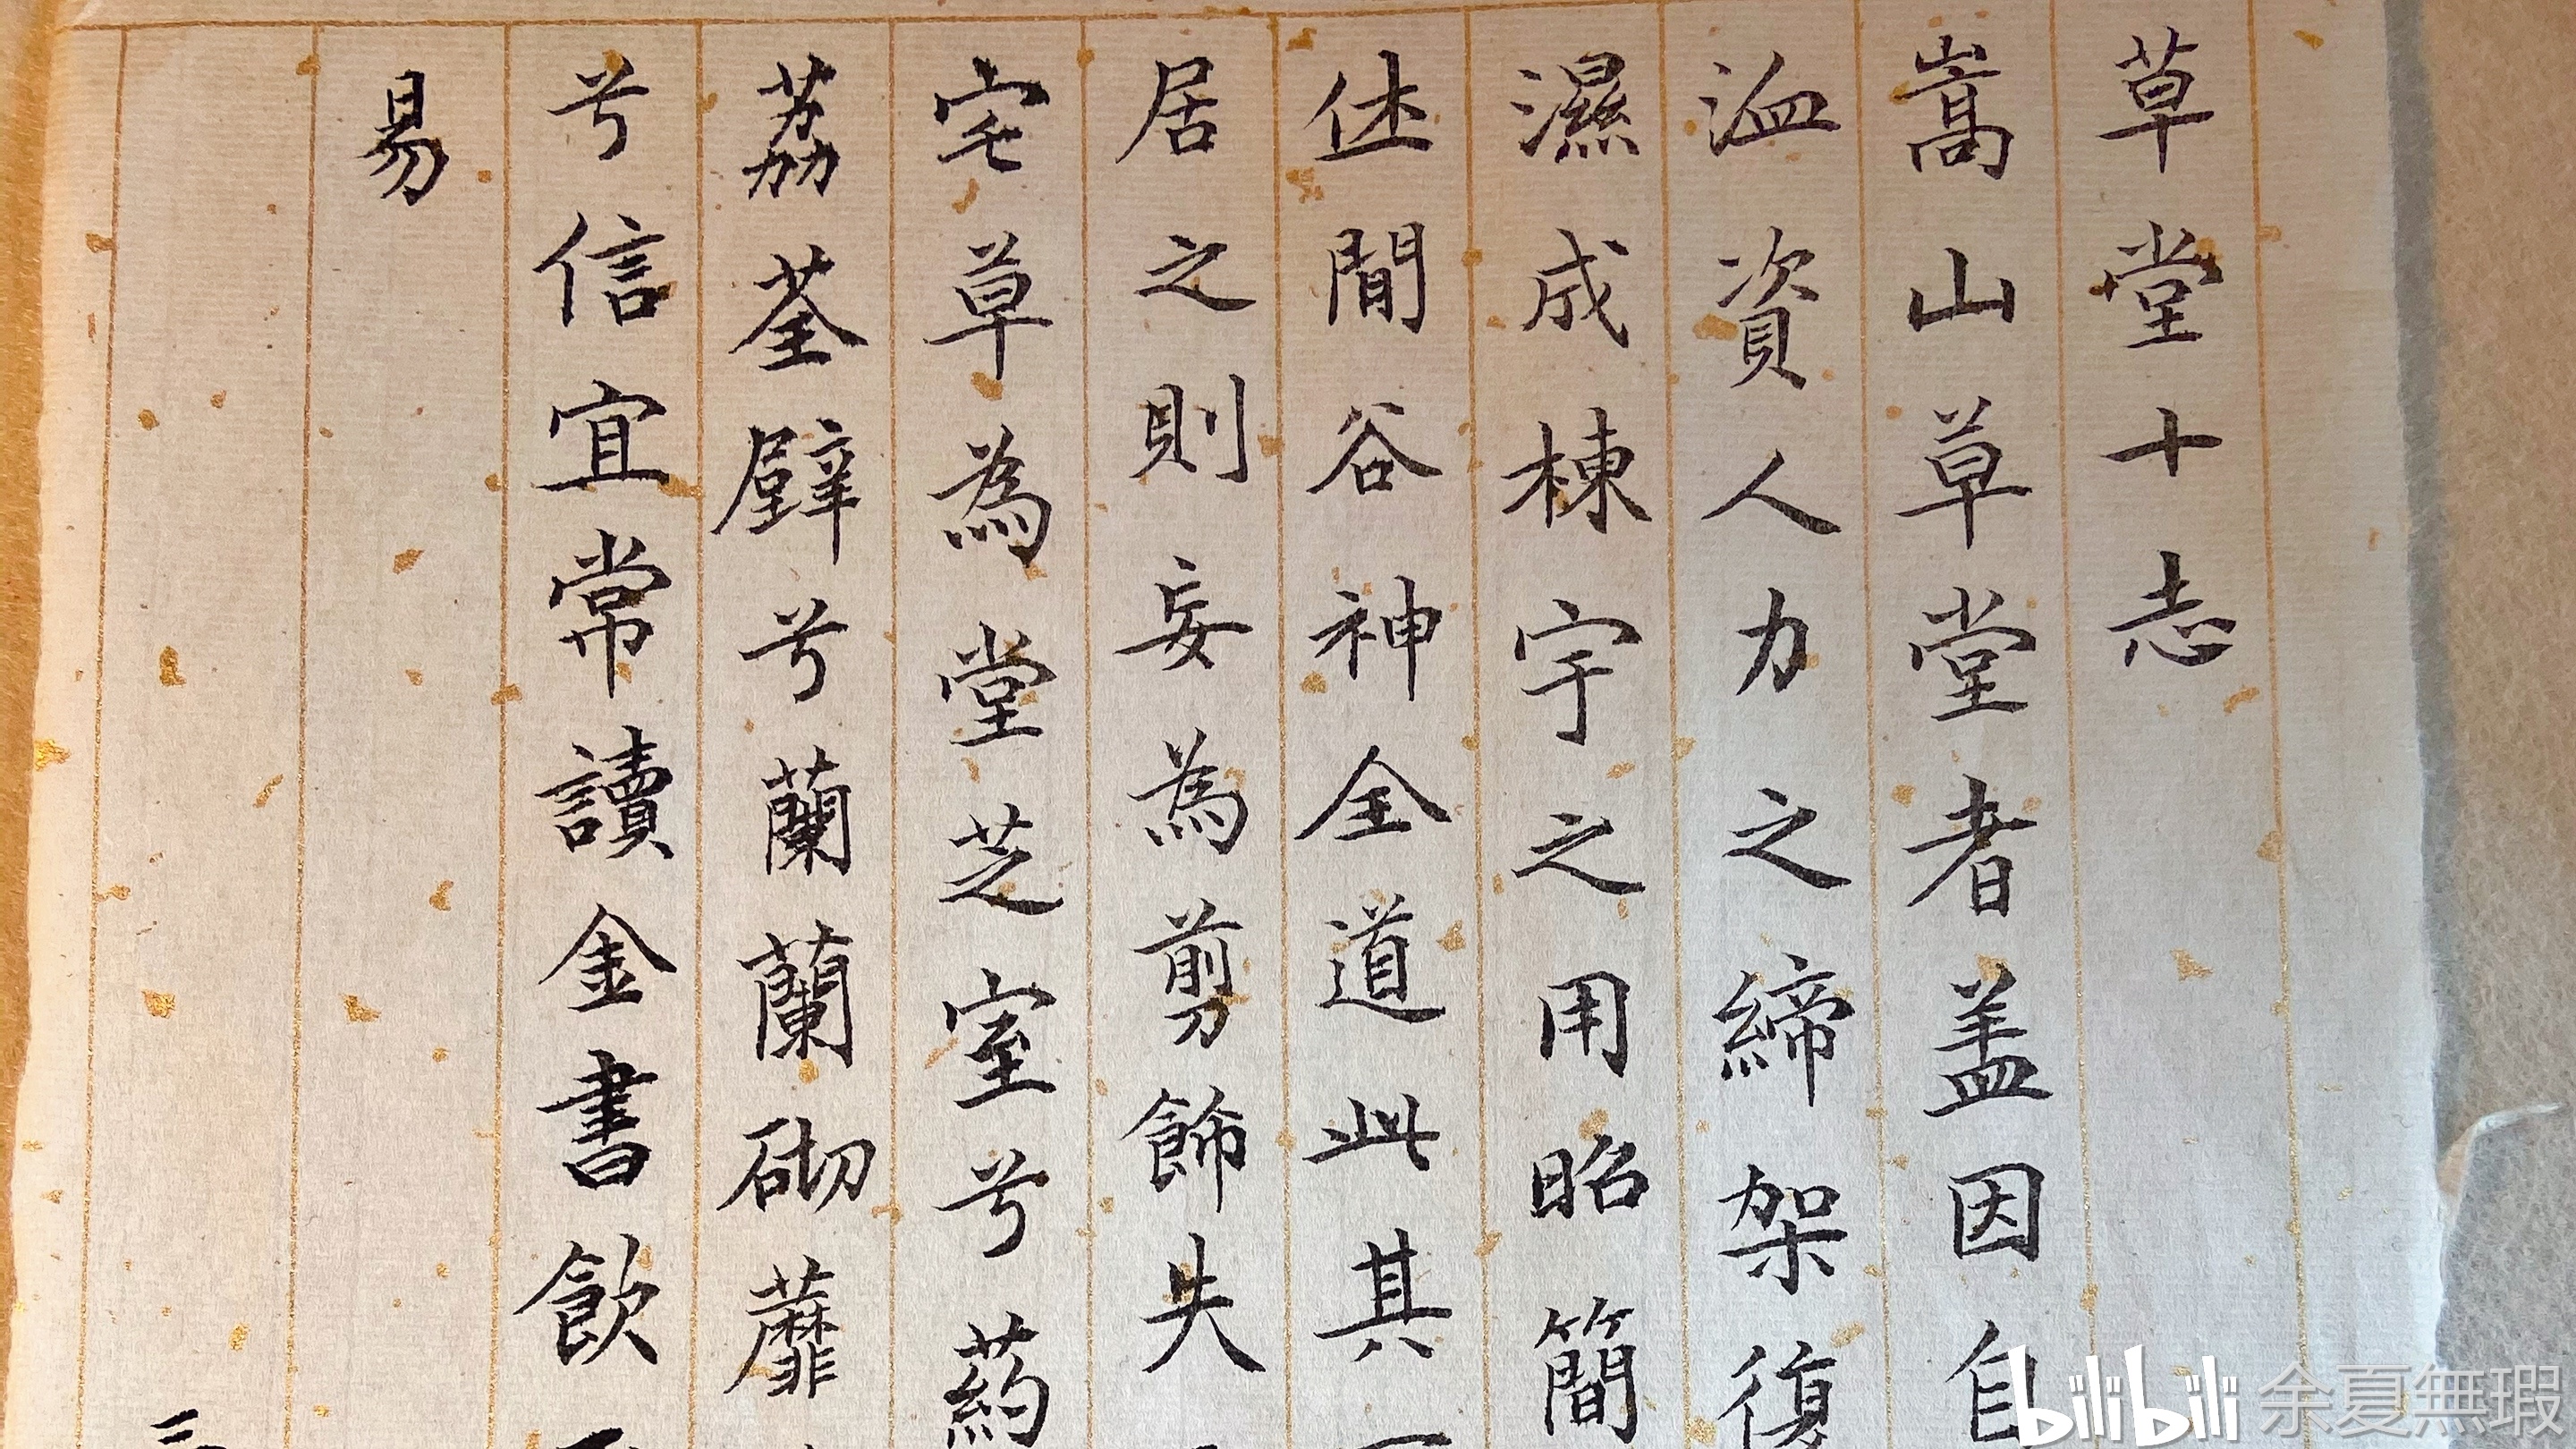 草堂十志
嵩山草堂者盖因自
洫資人力之締架復
濕成棟宇之用昭簡
休閒谷神全道此其
居之則妄為剪飾失
宅草為堂芝室兮葯
荔荃壁兮蘭蘭砌蘼
兮信宜常讀金書飲
易
bilibili 余夏無瑕